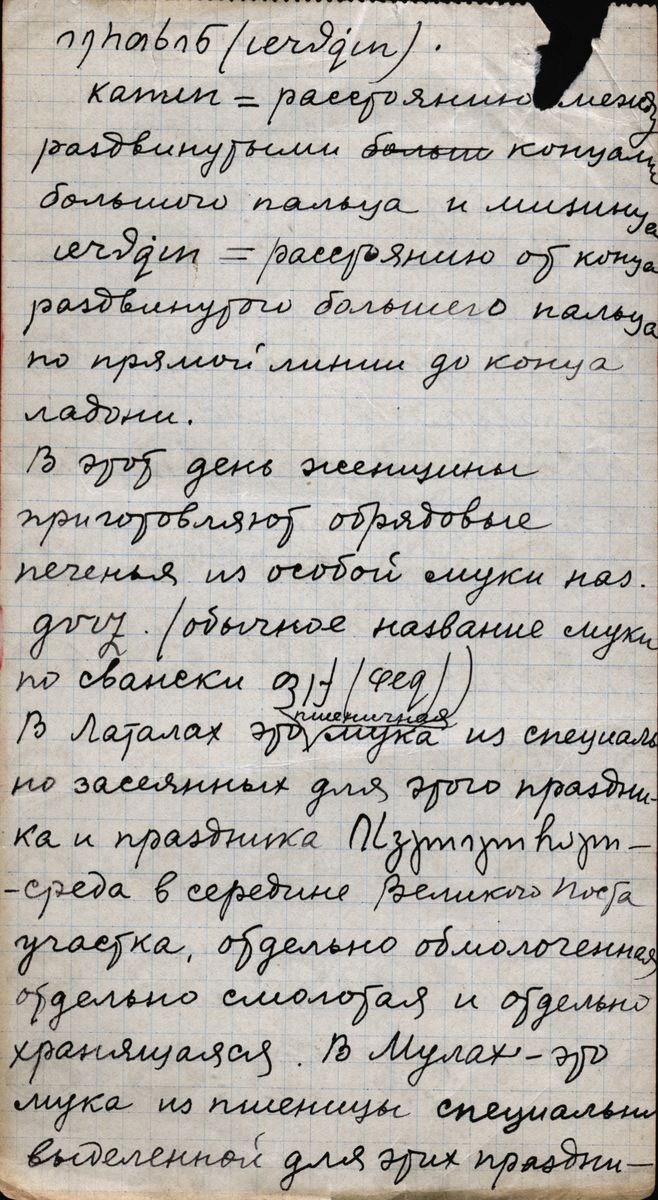 (
= расстоянию между
раздвинутыми больш концами
большого пальца и мизинца
= расстоянию от конца
раздвинутого большего пальца
по прямой линии до конца
ладони.
В этот день женщины
приготовляют обрядовые
печенья из особой муки наз.
/обычное название муки
по свански /фед/)
пшеничная
В Латалах это мука из специаль
но засеянных для этого праздни-
ка и праздника
-среда в середине Великого поста
участка, отдельно обмолоченная,
отдельно смолотая и отдельно
хранящаяся. В Мулах - это
мука из пшеницы специально
выделенной для этих праздни-